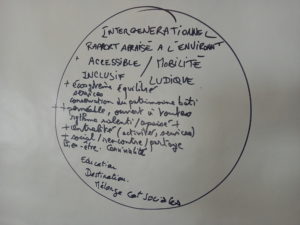 INTERGENERATIONNEL
RAPPORT APAISÉ A L'ENVIRONT
ACCESSIBLE / MOBILITÉ
INCLUSIF LUDIQUE
+ écosystème équilibré
services
conservation du patrimoine bâti
+ perméable, ouvert à toutes
rythme ralenti / apaisé +
+ centralité (activités, services)
+ social / rencontre / partage
bien-être. Convivialité
Education
Destination.
Mélange cat sociales